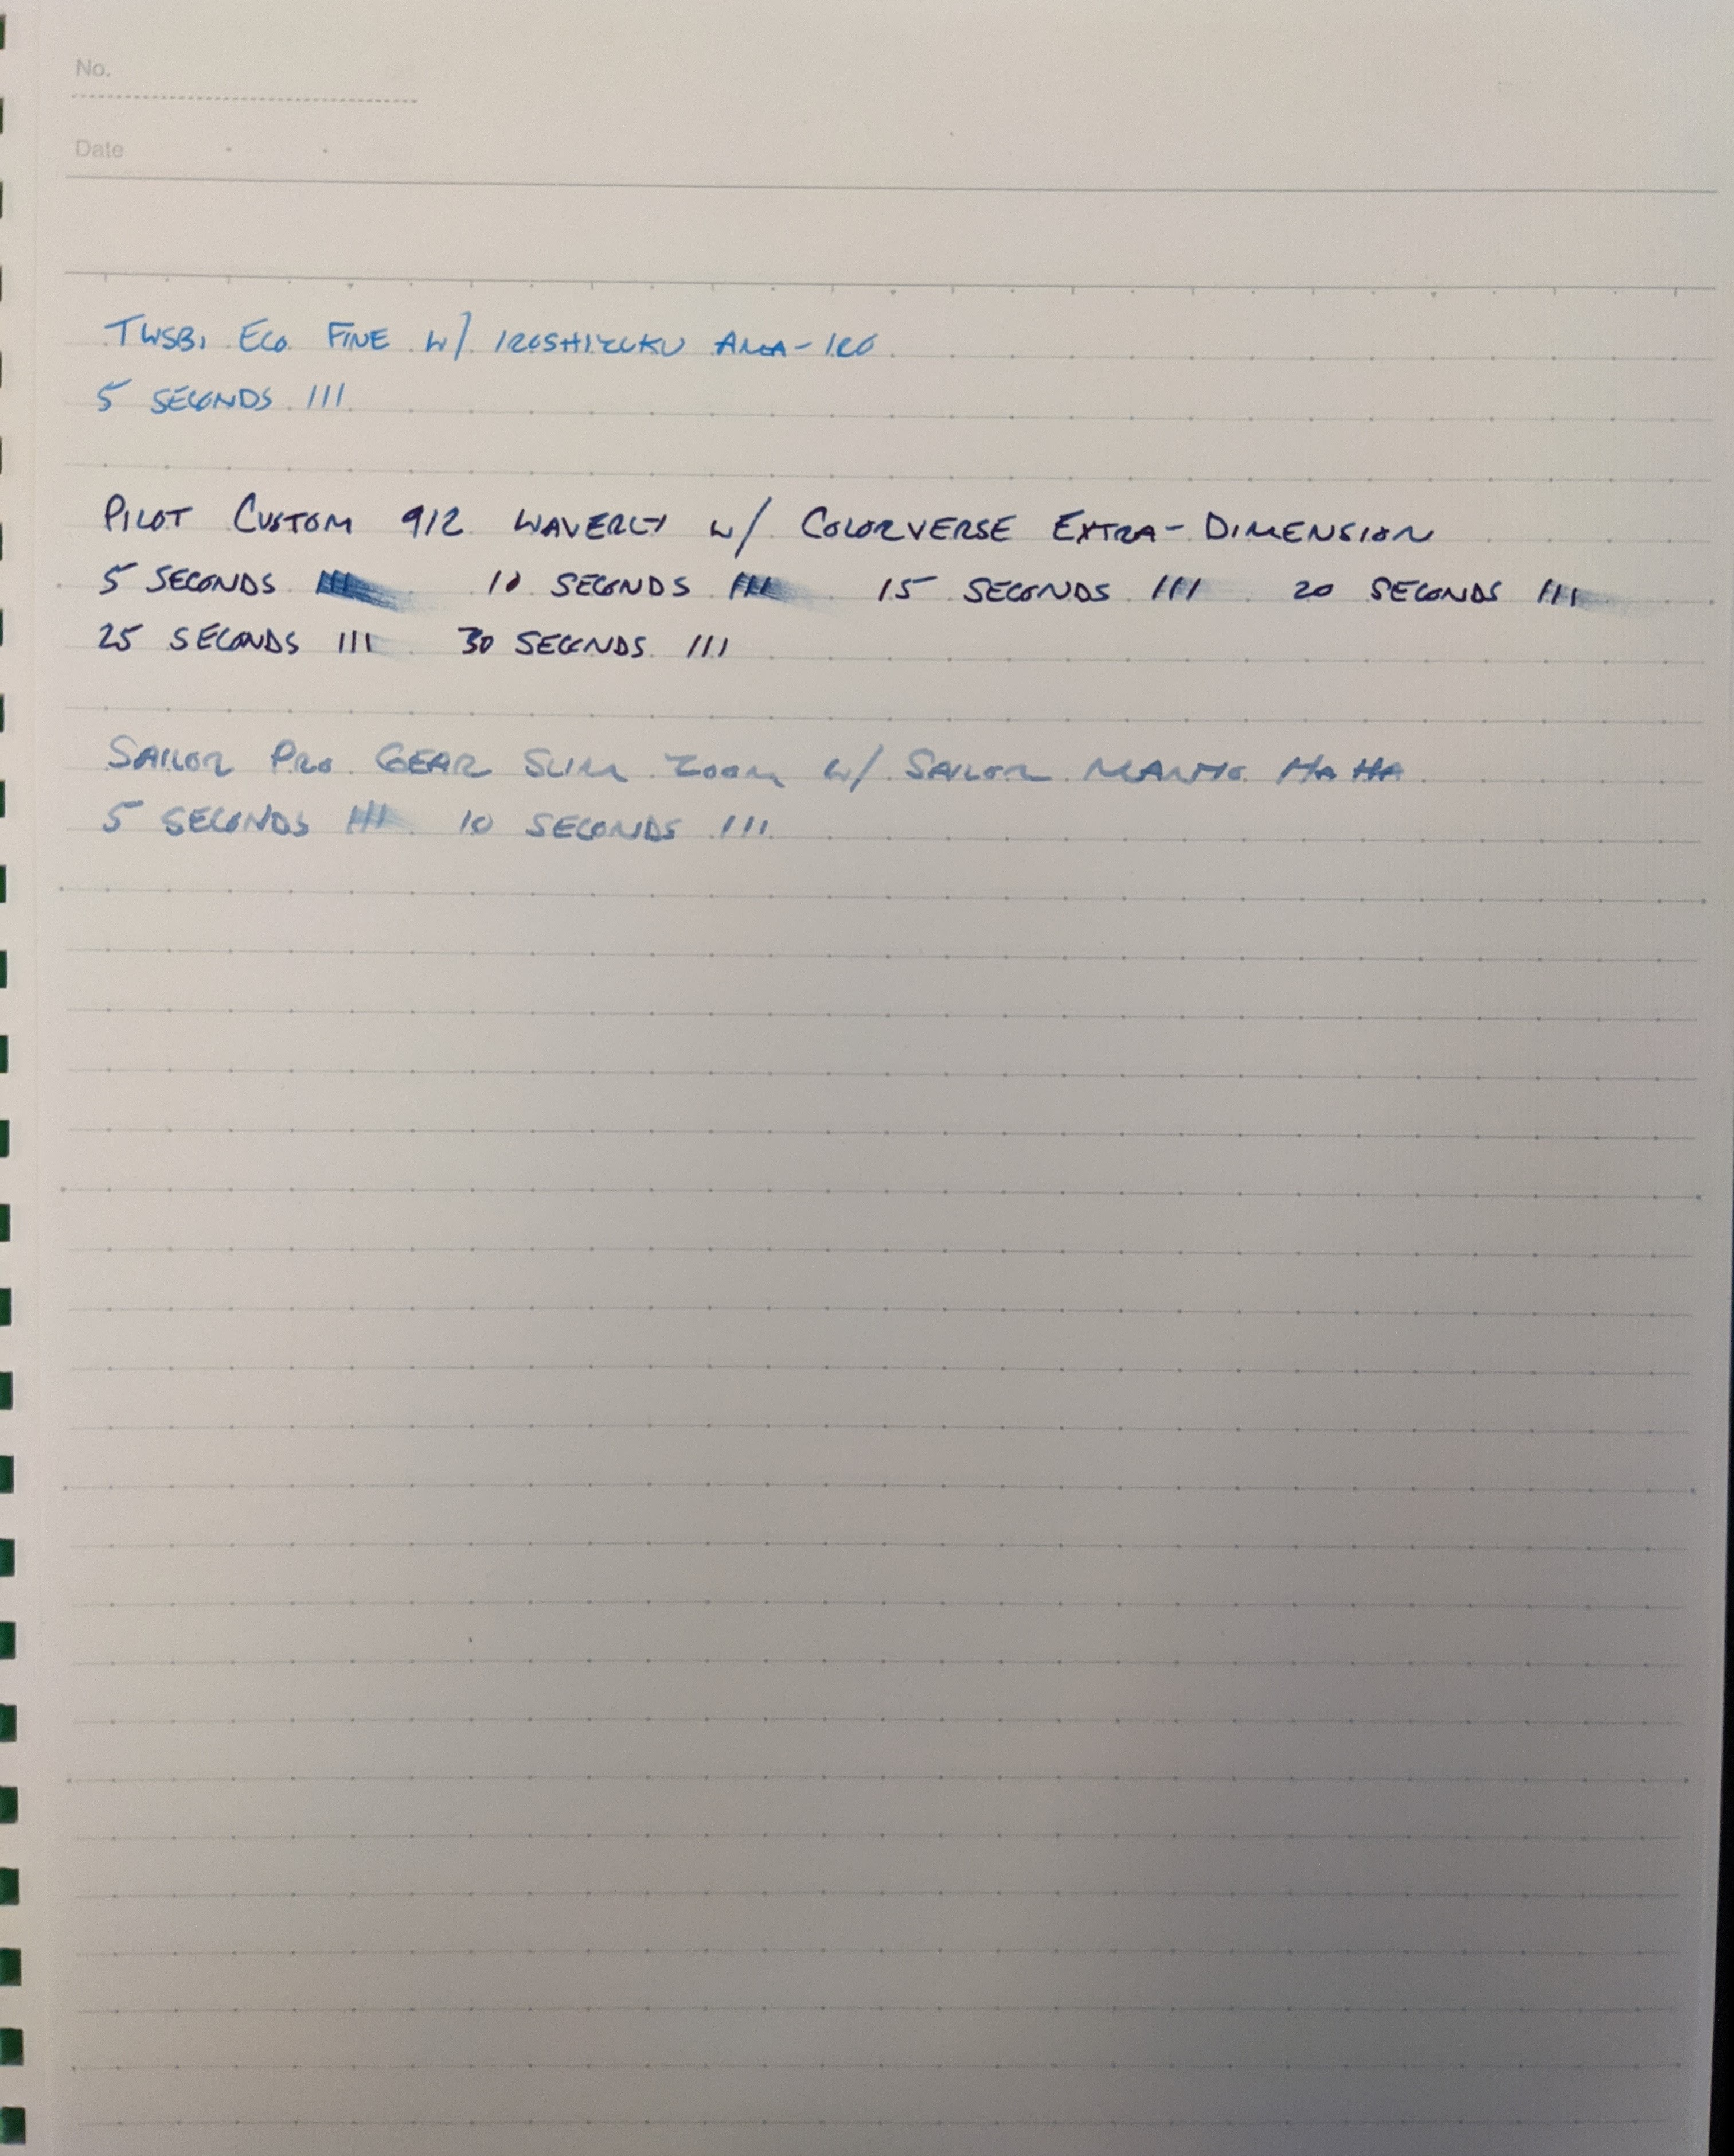 No.
Date
TWSBI ECO FINE W/ IROSHIZUKU AMA-IRO
5 SECONDS III
PILOT CUSTOM 912 WAVERLY W/ COLORVERSE EXTRA-DIMENSION
5 SECONDS III 10 SECONDS III 15 SECONDS III 20 SECONDS III
25 SECONDS III 30 SECONDS III
SAILOR PRO GEAR SLIM ZOOM W/ SAILOR MANYO HA HA
5 SECONDS III 10 SECONDS III